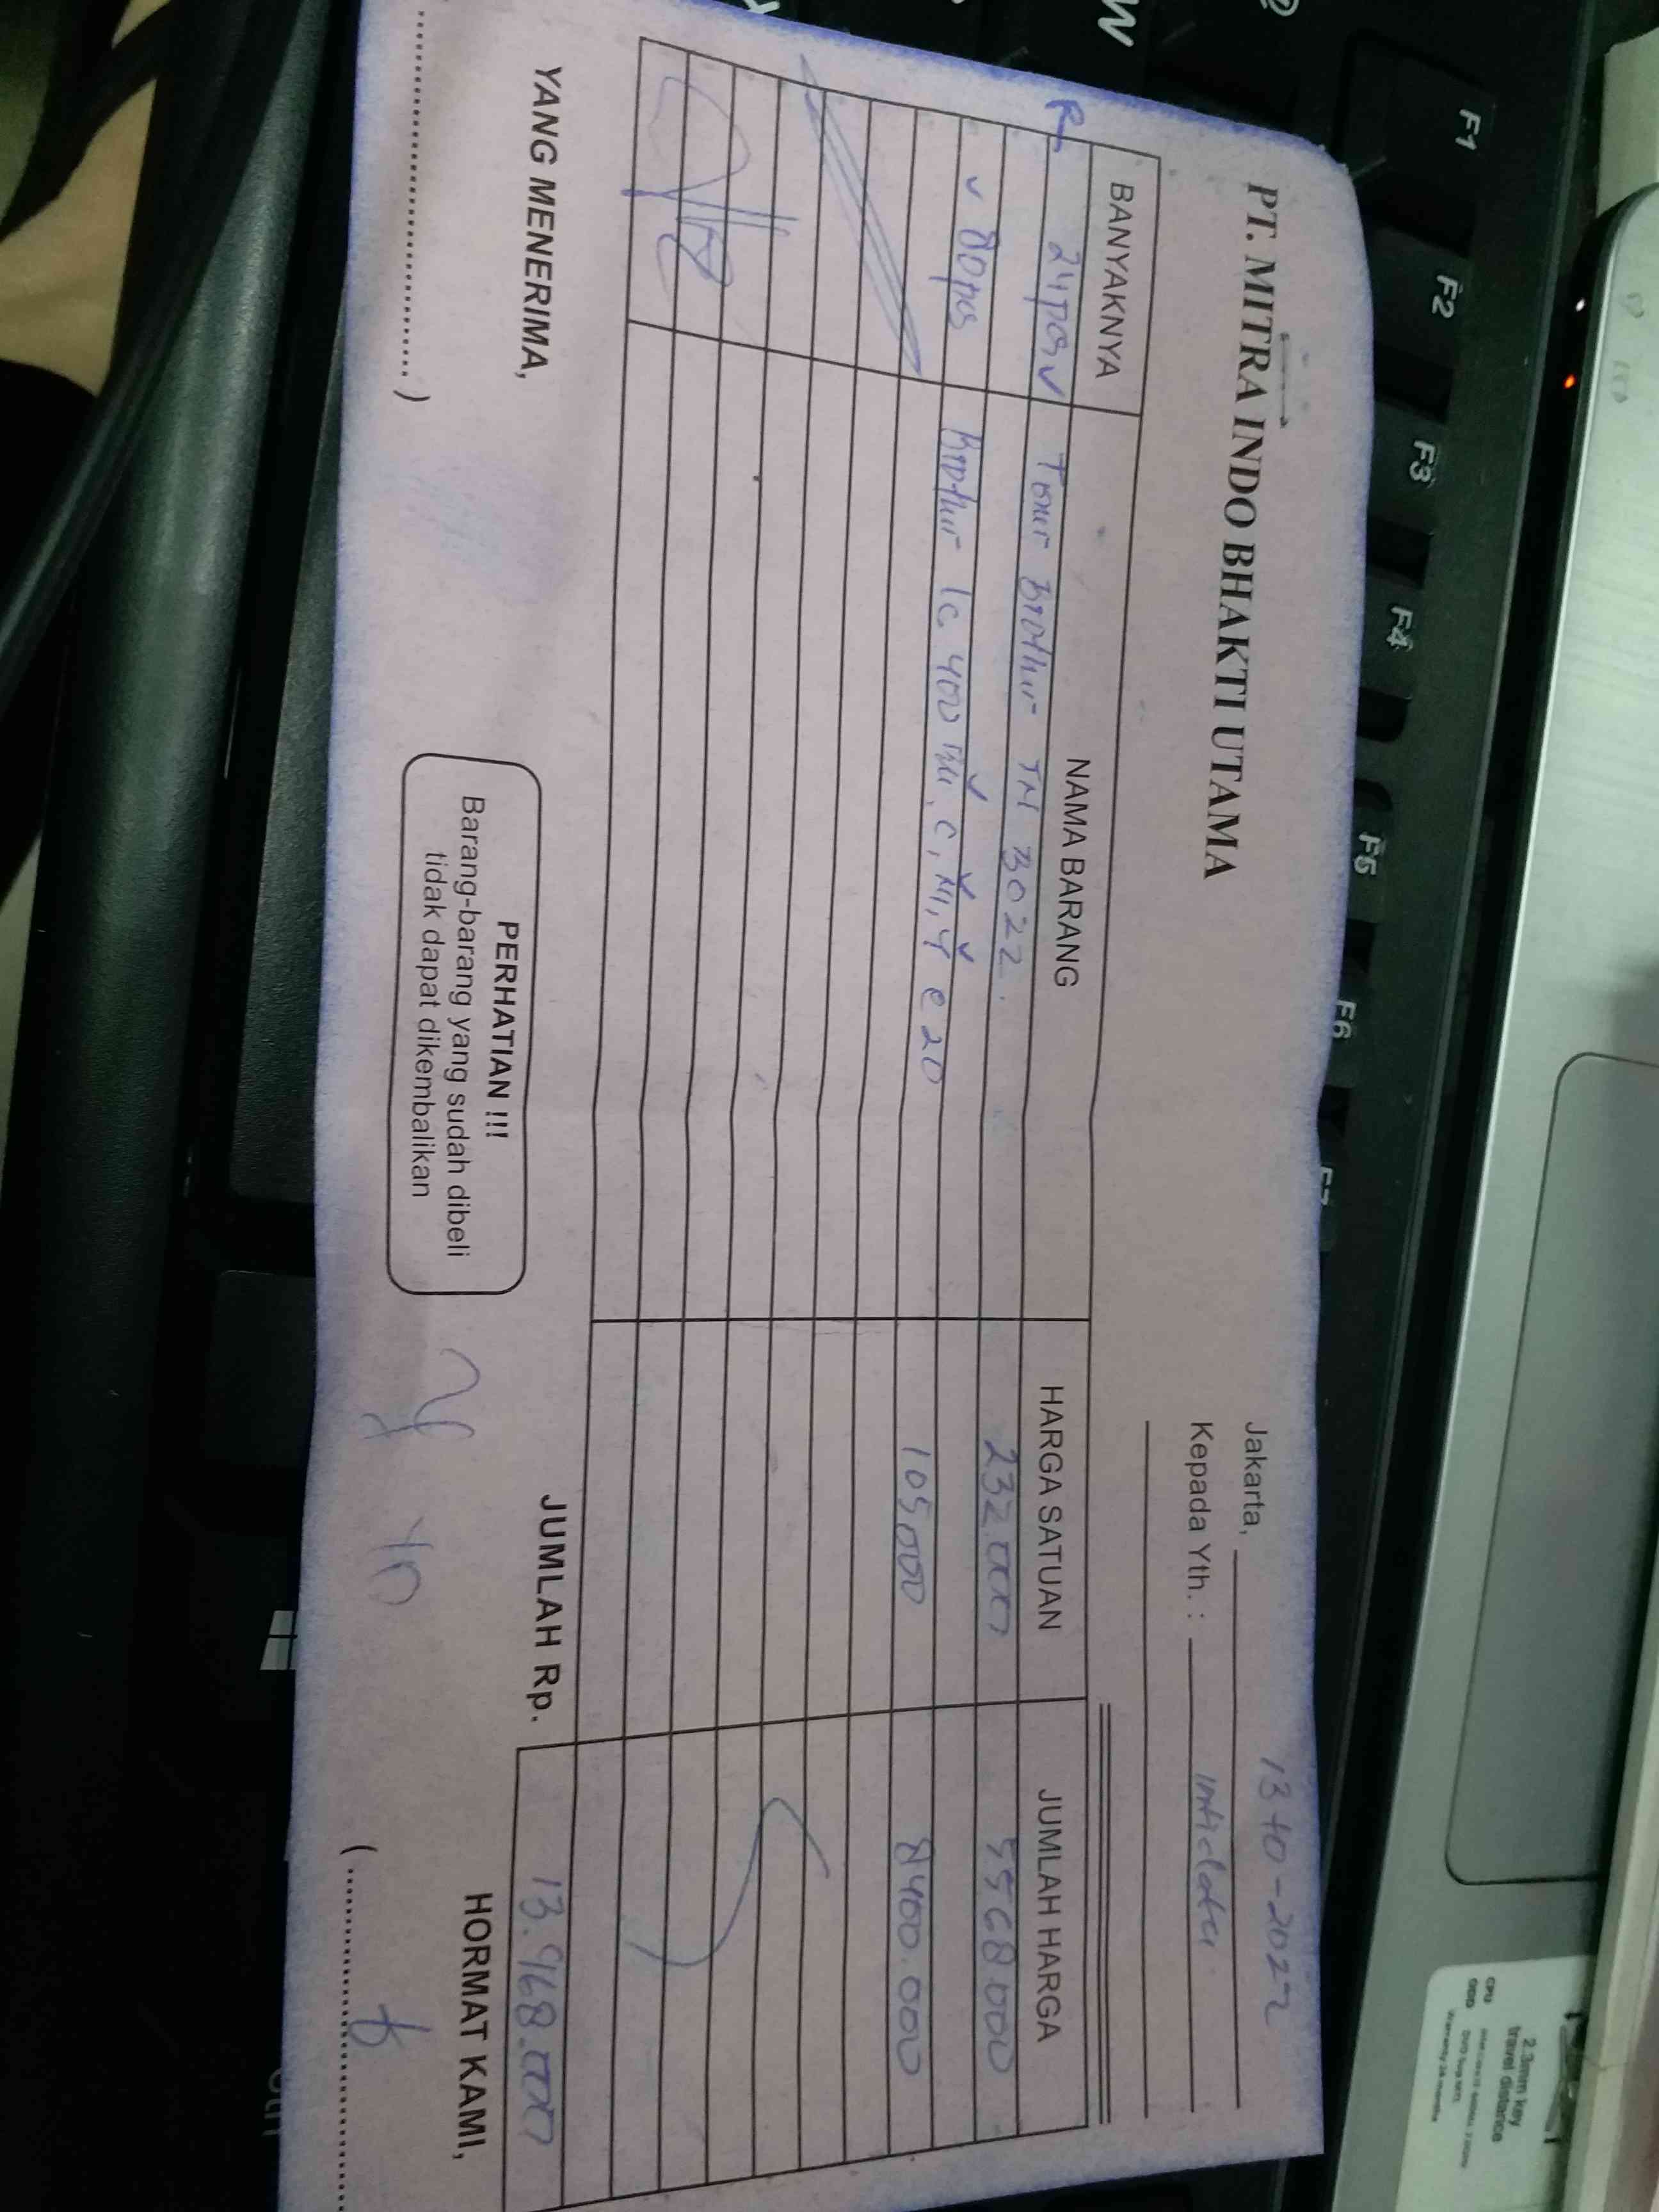 PT. MITRA INDO BHAKTI UTAMA
Jakarta, 13-10-2022
Kepada Yth. :
BANYAKNYA NAMA BARANG HARGA SATUAN JUMLAH HARGA
24 pcs Toner Brother TN 3022. 232.000 5568.000
80 pcs Brother lc 400 C, M, Y @ 20 105,000 8400.000
JUMLAH Rp. 13.968.000
YANG MENERIMA,
PERHATIAN !!!
Barang-barang yang sudah dibeli
tidak dapat dikembalikan
HORMAT KAMI,
F1 F2 F3 F4 F5 F6 F7
W
2.3mm key
travel distance
CPU
ODD